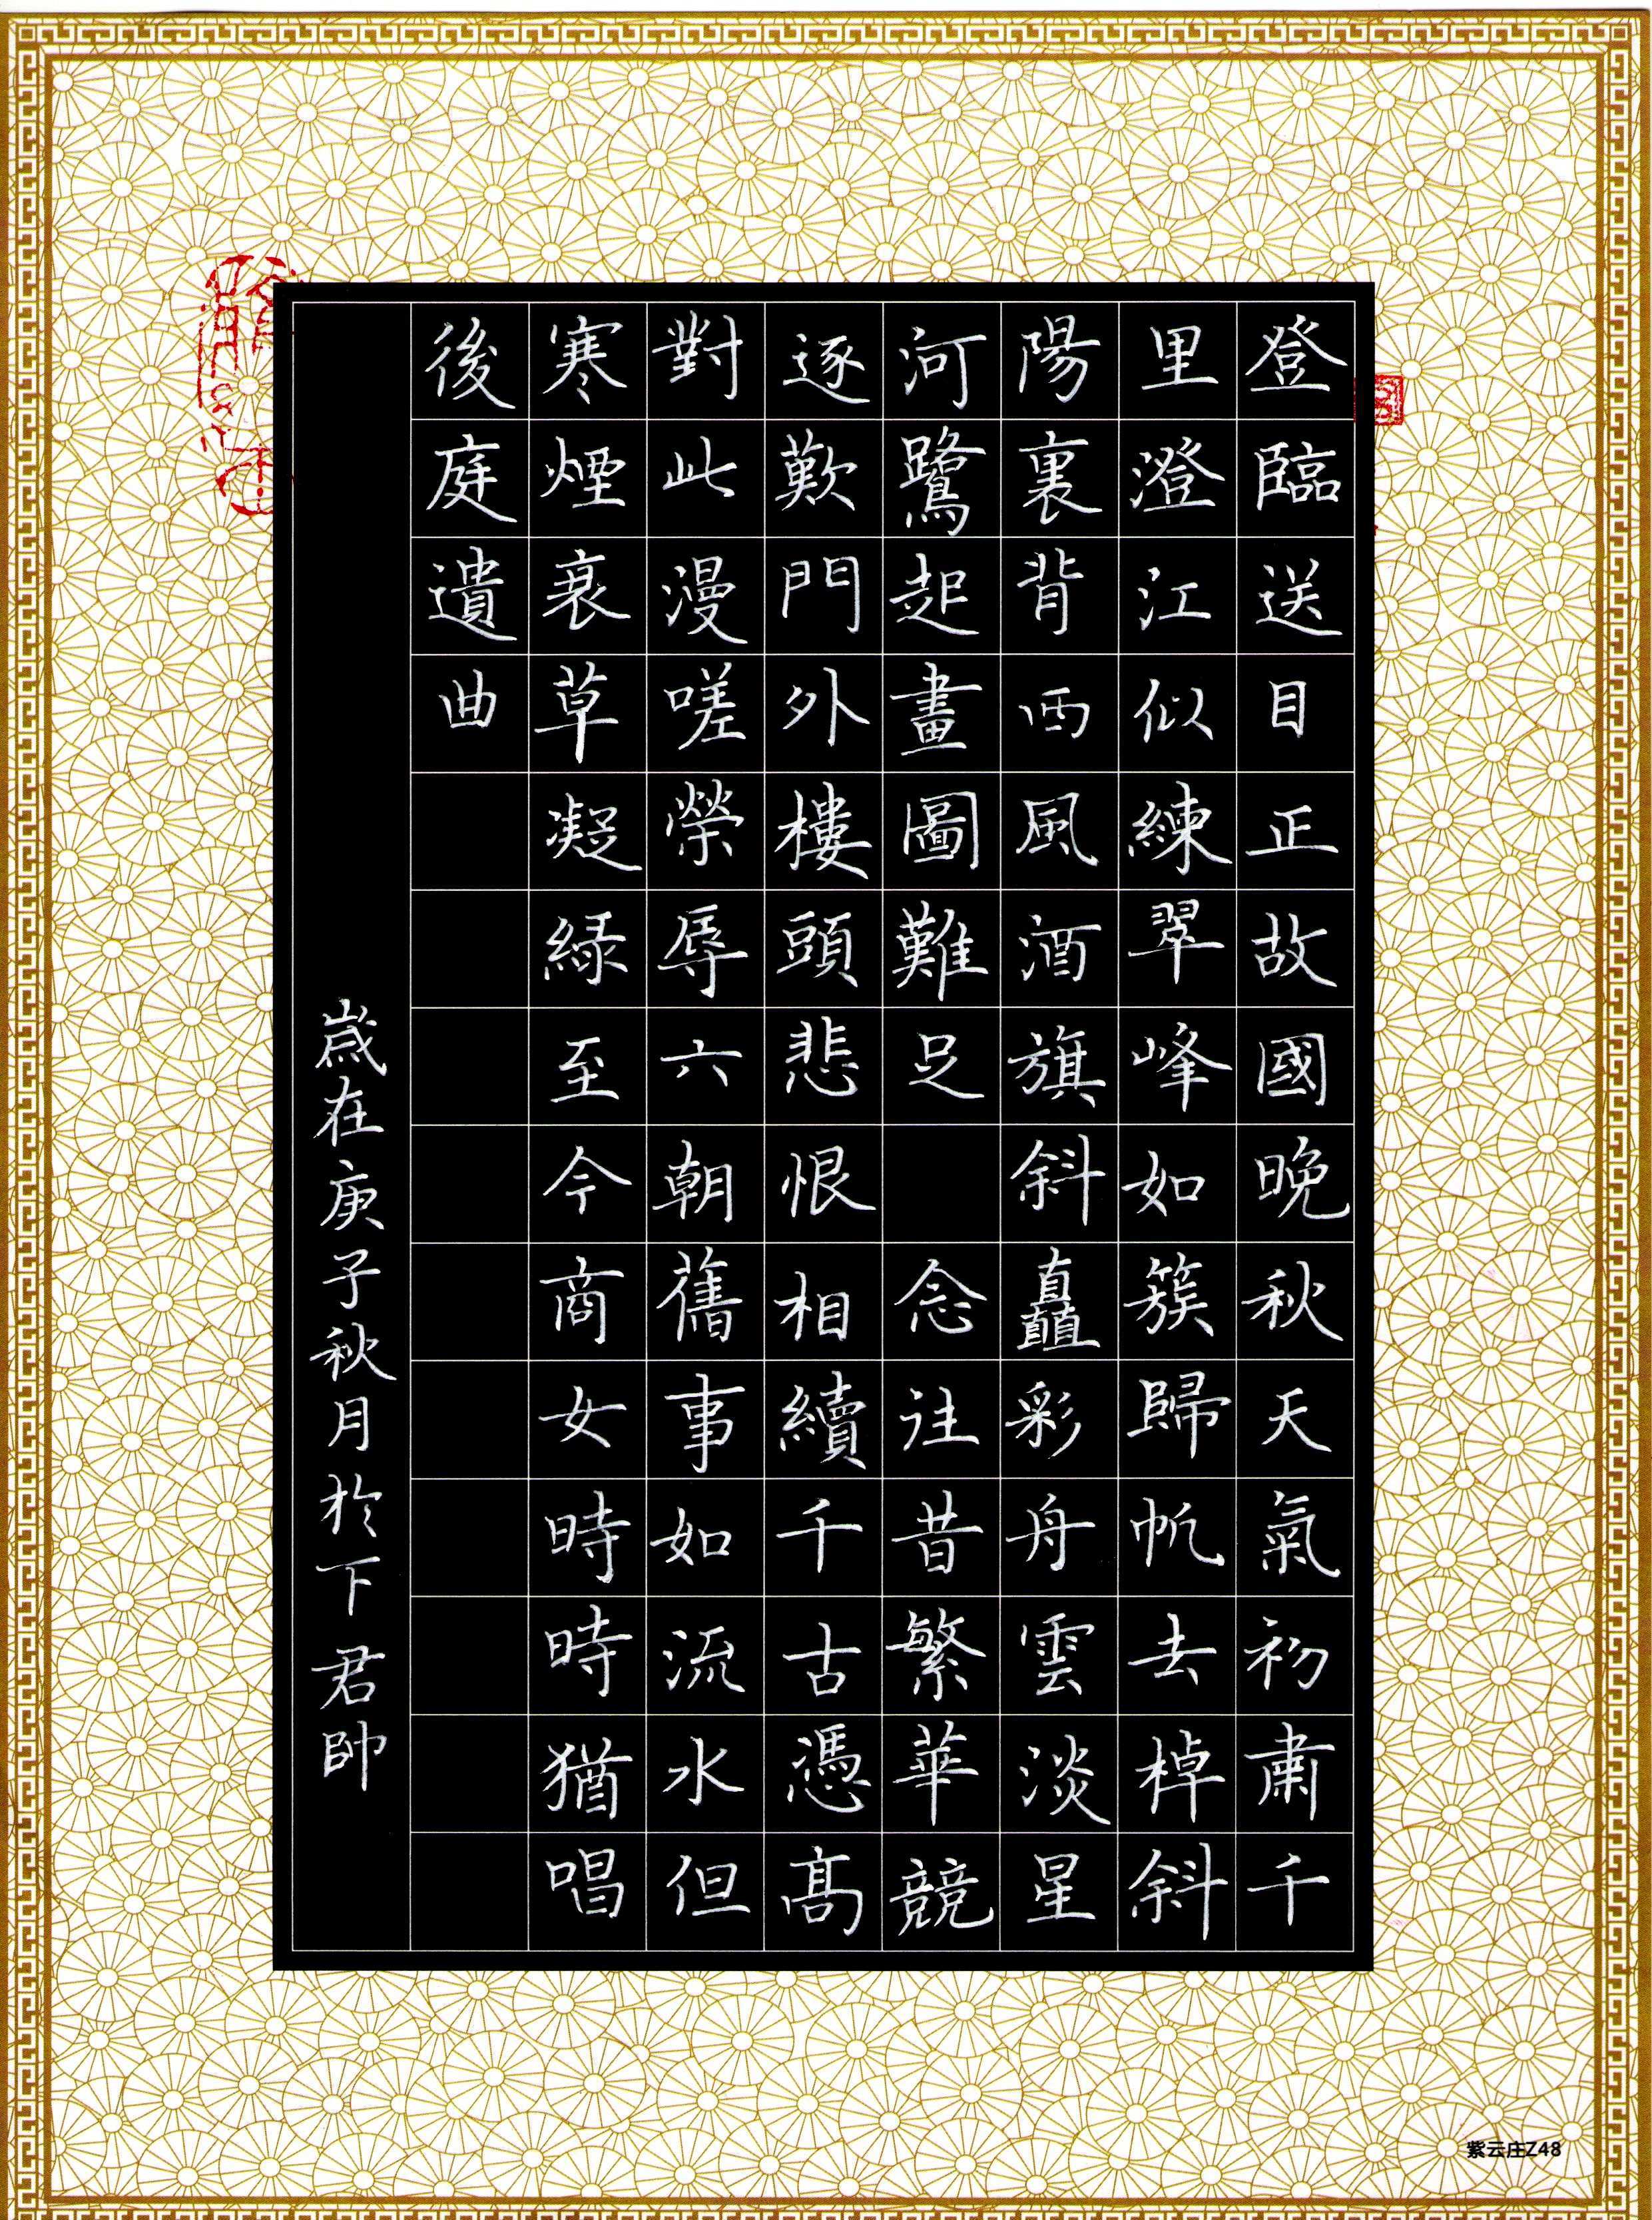 登臨送目正故國晚秋天氣初肅千
里澄江似練翠峰如簇歸帆去棹斜
陽裏背西風酒旗斜矗彩舟雲淡星
河鷺起畫圖難足 念往昔繁華競
逐歎門外樓頭悲恨相續千古憑高
對此漫嗟榮辱六朝舊事如流水但
寒煙衰草凝綠至今商女時時猶唱
後庭遺曲
歲在庚子秋月於下君帥
紫云庄Z48